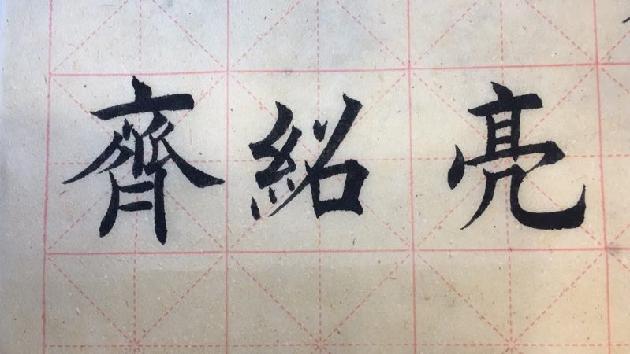 齊紹亮